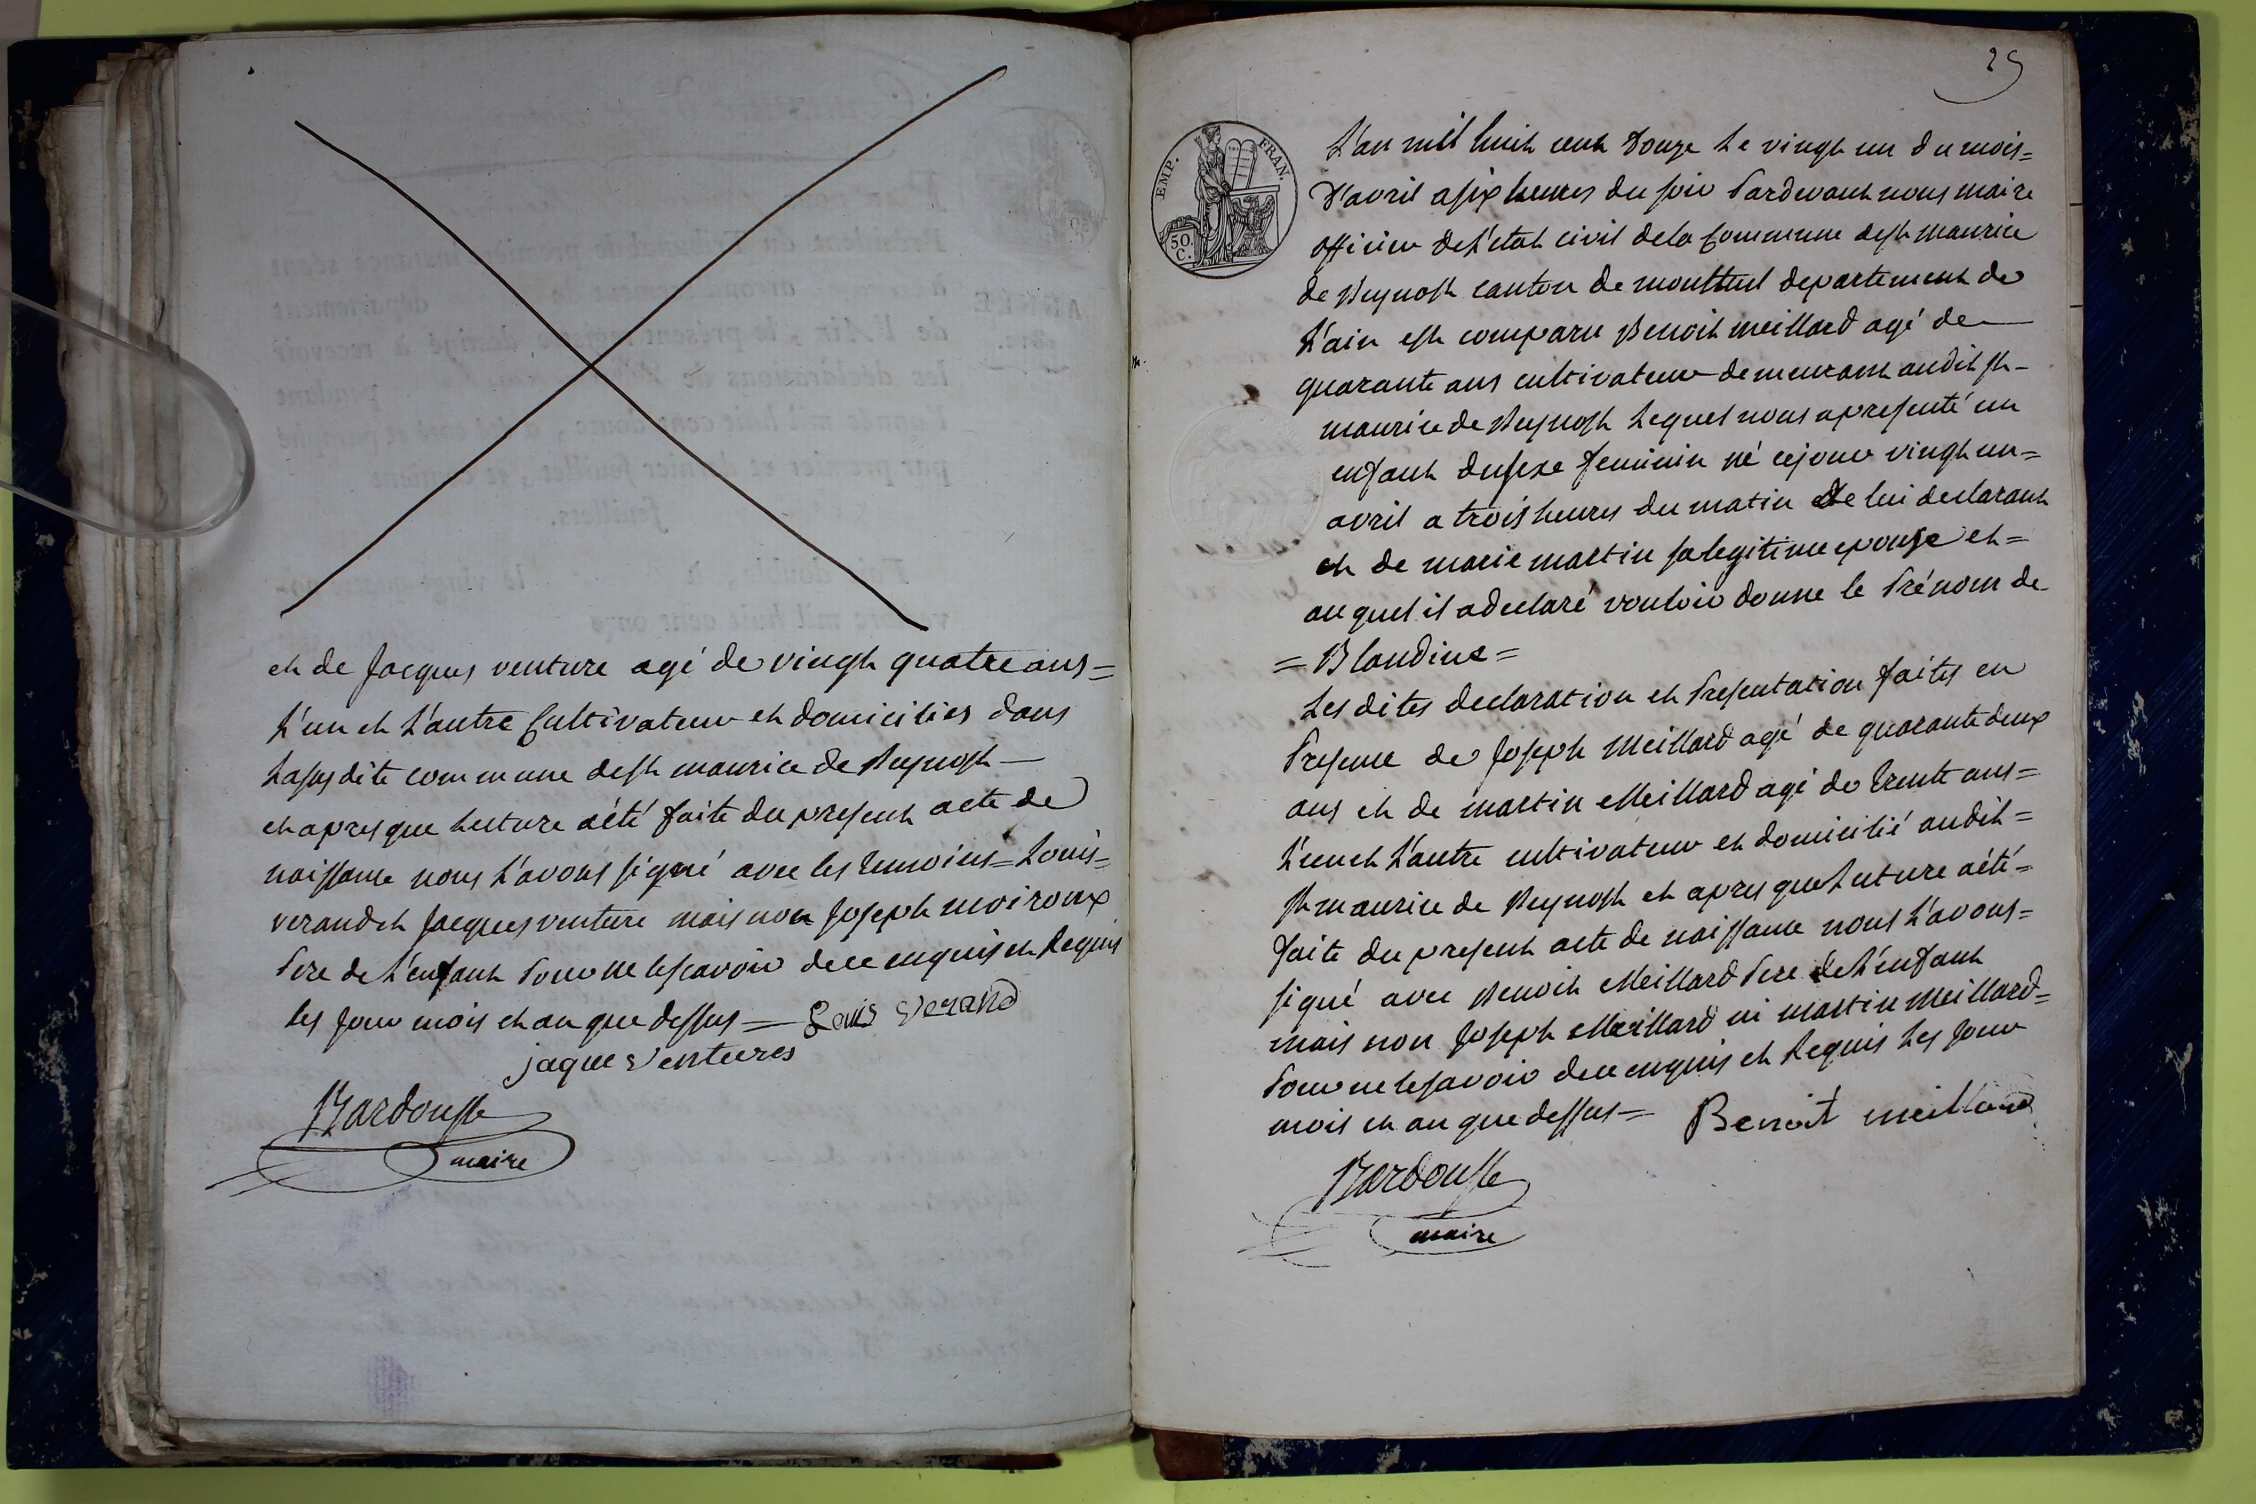 et de Jacques venture agé de vingt quatre ans=
L'un et L'autre Cultivateur et domicilies dans
La susdite commune de st maurice de Beynost —
et apres que Lecture a été faite du present acte de
naissance nous L'avons signé avec les temoins= Louis=
verand et Jacques venture mais non Joseph moiroux
Pere de L'enfant Pour ne le scavoir de ce enquis et Requis
Les jour mois et an que dessus = Louis Verand
jaque Ventures
Bardousse
maire
25
EMP. FRAN.
50.
C.
L'an mil huit cent douze Le vingt un du mois=
D'avril a six heures du soir Pardevant nous maire
officier de L'état civil de la Commune de st maurice
de Beynost canton de montluel departement de
L'ain est comparu Benoit meillard agé de
quarante ans cultivateur demeurant audit st-
maurice de Beynost Lequel nous a presenté un
enfant du sexe feminin né ce jour vingt un=
avril a trois heures du matin de lui declarant
et de marie martin sa legitime epouse et=
au quel il a declaré vouloir donne le Prénom de
= Blandine =
Les dites declaration et Presentation faites en
Presence de Joseph Meillard agé de quarante deux
ans et de martin Meillard agé de trente ans=
L'un et L'autre cultivateur et domicilié audit=
st maurice de Beynost et apres que Lecture a été=
faite du present acte de naissance nous L'avons=
signé avec Benoit Meillard Pere de L'enfant
mais non Joseph Meillard ni martin Meillard=
Pour ne le savoir de ce enquis et Requis Les jour
mois et an que dessus = Benoit meillard
Bardousse
maire